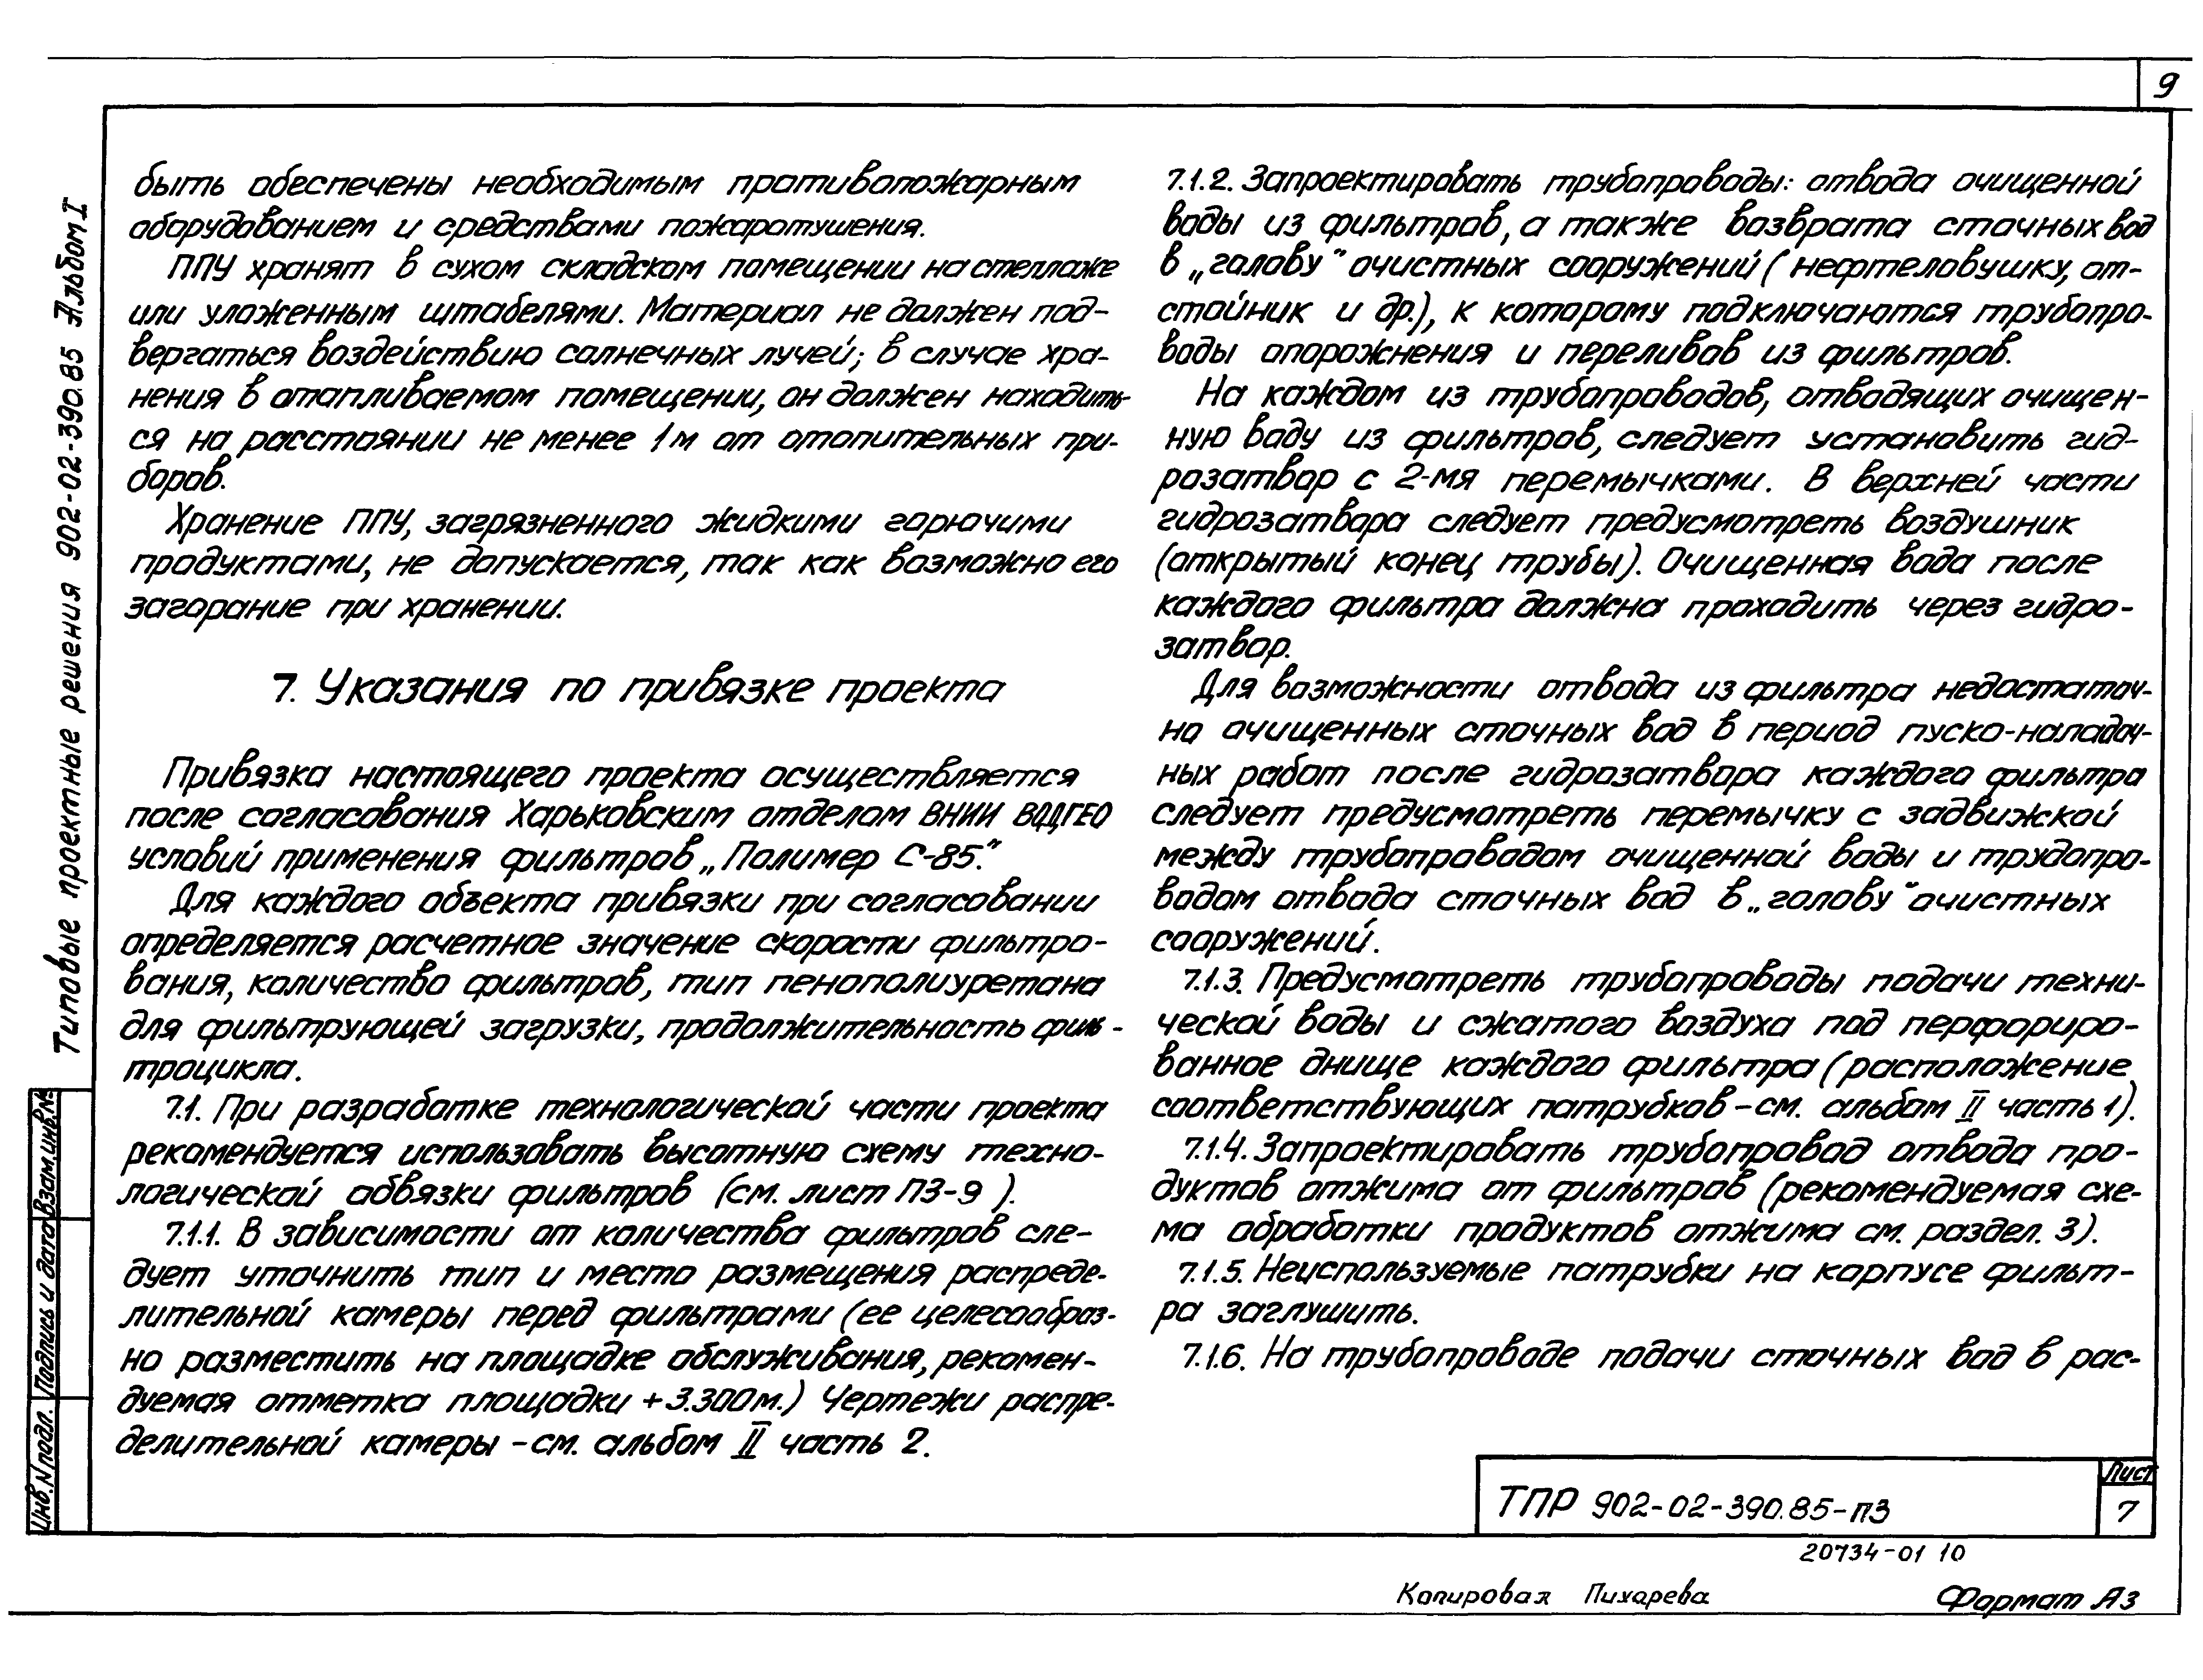 9
Типовые проектные решения 902-02-390.85 Альбом I
быть обеспечены необходимым противопожарным
оборудованием и средствами пожаротушения.
ППУ хранят в сухом складском помещении на стеллаже
или уложенным штабелями. Материал не должен под-
вергаться воздействию солнечных лучей; в случае хра-
нения в отапливаемом помещении, он должен находить-
ся на расстоянии не менее 1м от отопительных при-
боров.
Хранение ППУ, загрязненного жидкими горючими
продуктами, не допускается, так как возможно его
загорание при хранении.
7. Указания по привязке проекта
Привязка настоящего проекта осуществляется
после согласования Харьковским отделом ВНИИ ВОДГЕО
условий применения фильтров „Полимер С-85."
Для каждого объекта привязки при согласовании
определяется расчетное значение скорости фильтро-
вания, количество фильтров, тип пенополиуретана
для фильтрующей загрузки, продолжительность филь-
троцикла.
7.1. При разработке технологической части проекта
рекомендуется использовать высотную схему техно-
логической обвязки фильтров (см. лист ПЗ-9 ).
7.1.1. В зависимости от количества фильтров сле-
дует уточнить тип и место размещения распреде-
лительной камеры перед фильтрами (ее целесообраз-
но разместить на площадке обслуживания, рекомен-
дуемая отметка площадки +3.300м.) Чертежи распре-
делительной камеры -см. альбом II часть 2.
7.1.2. Запроектировать трубопроводы: отвода очищенной
воды из фильтров, а также возврата сточных вод
в „голову" очистных сооружений ( нефтеловушку, от-
стойник и др.), к которому подключаются трубопро-
воды опорожнения и переливов из фильтров.
На каждом из трубопроводов, отводящих очищен-
ную воду из фильтров, следует установить гид-
розатвор с 2-мя перемычками. В верхней части
гидрозатвора следует предусмотреть воздушник
(открытый конец трубы). Очищенная вода после
каждого фильтра должна проходить через гидро-
затвор.
Для возможности отвода из фильтра недостаточ-
но очищенных сточных вод в период пуско-наладоч-
ных работ после гидрозатвора каждого фильтра
следует предусмотреть перемычку с задвижкой
между трубопроводом очищенной воды и трудопро-
водом отвода сточных вод в „голову" очистных
сооружений.
7.1.3. Предусмотреть трубопроводы подачи техни-
ческой воды и сжатого воздуха под перфориро-
ванное днище каждого фильтра (расположение
соответствующих патрубков-см. альбом II часть 1).
7.1.4. Запроектировать трубопровод отвода про-
дуктов отжима от фильтров (рекомендуемая схе-
ма обработки продуктов отжима см. раздел. 3).
7.1.5. Неиспользуемые патрубки на корпусе фильт-
ра заглушить.
7.1.6. На трубопроводе подачи сточных вод в рас-
Инв.N подл. Подпись и дата Взам.инв.№
ТПР 902-02-390.85-ПЗ
Лист
7
20734-01 10
Копировал Пихарева Формат А3